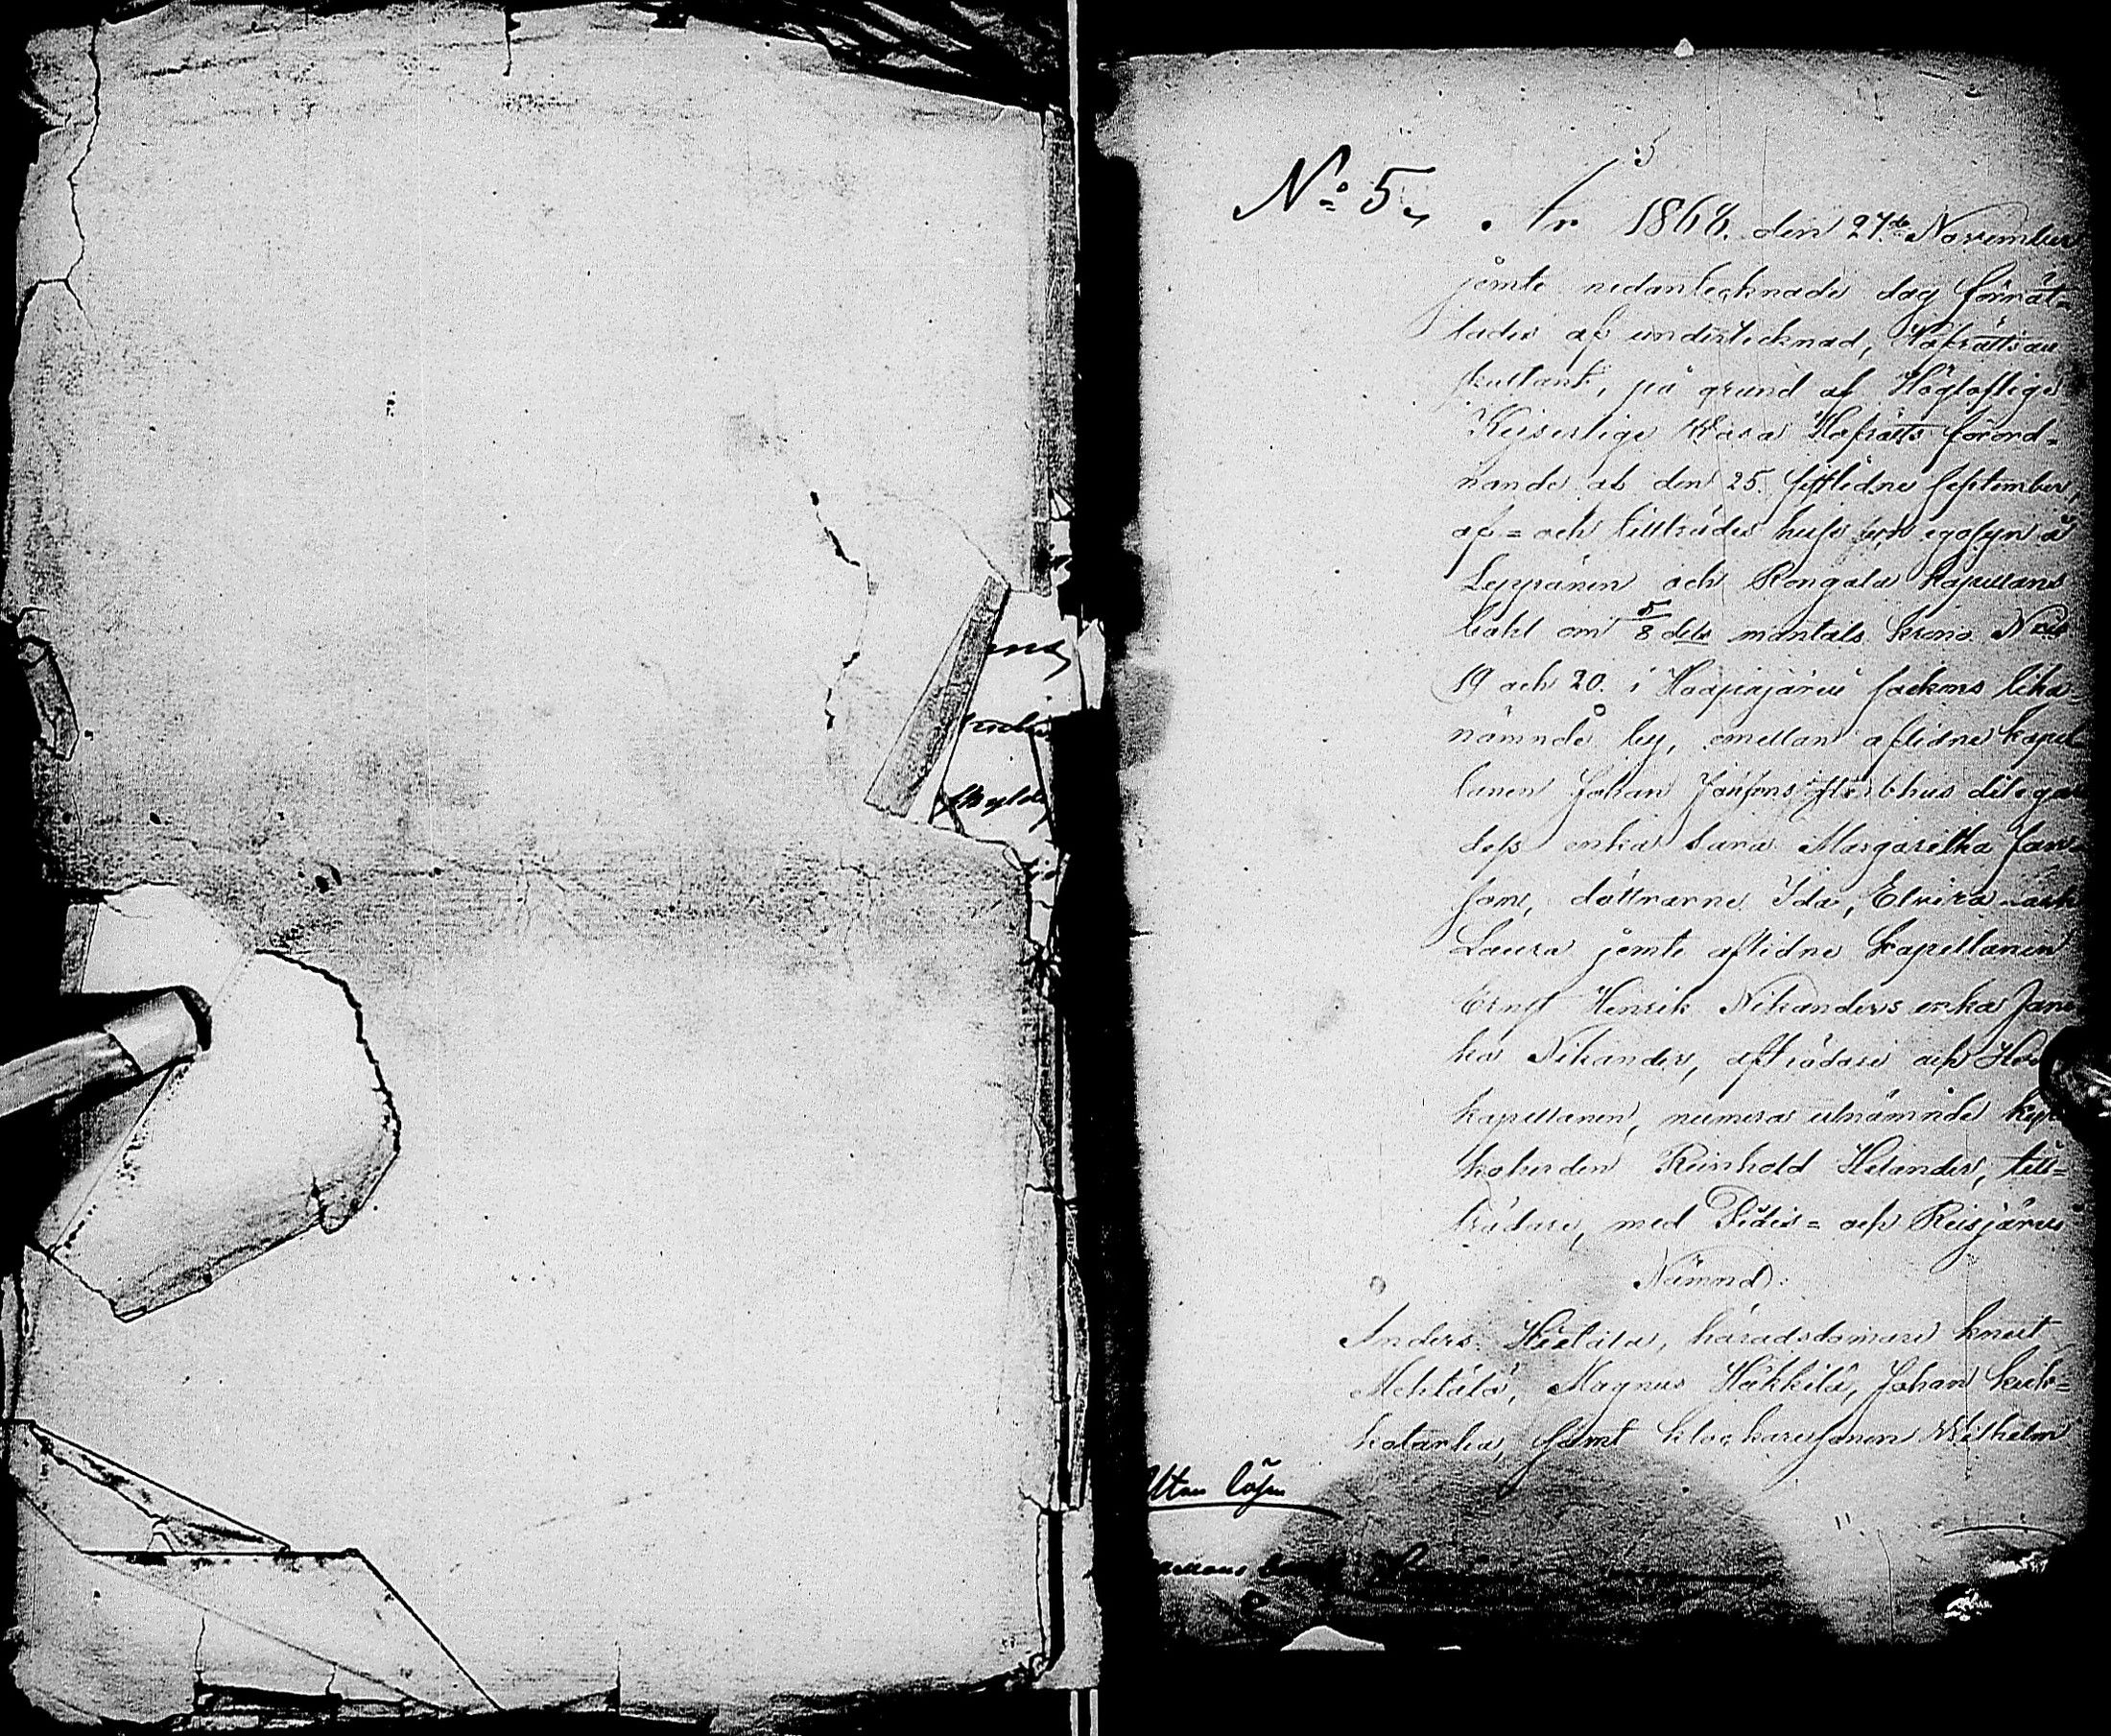 5
N:o 5.
År 1868. den 27de November
jemte nedantecknade dag förrät-
tades af undertecknad, Hofrättsau
skultant, på grund af Högloflige
Kejserlige Wasa Hofrätts förord-
nande af den 25. sistlidne September,
af= och tillträdes huse och egosyn å
Leppänen och Kangala kapellans
bohl om 5/8 dels mantals krono N:ris
19 och 20. i Haapajärvi sockens lika-
nämnde by, emellan aflidne kapel-
lanen Johan Jansons sterbhus delegare
dess enka Sara Margaretha Jan-
son, döttrarne Ida, Elvira och
Laura jemte aflidne kapellanen
Ernst Henrik Nikanders enka Jan
ka Nikander, afträdare och
kapellanen, numera utnämnde kyrko
koherden Reinhold Helander, till-
trädare, med Pidis= och Reisjärvi
Nämnd:
Anders Hietala, häradsdomare Knut
Mehtälä, Magnus Häkkilä, Johan Kuk-
kolanka, samt klockaresonen Wilhelm
Utan lösen